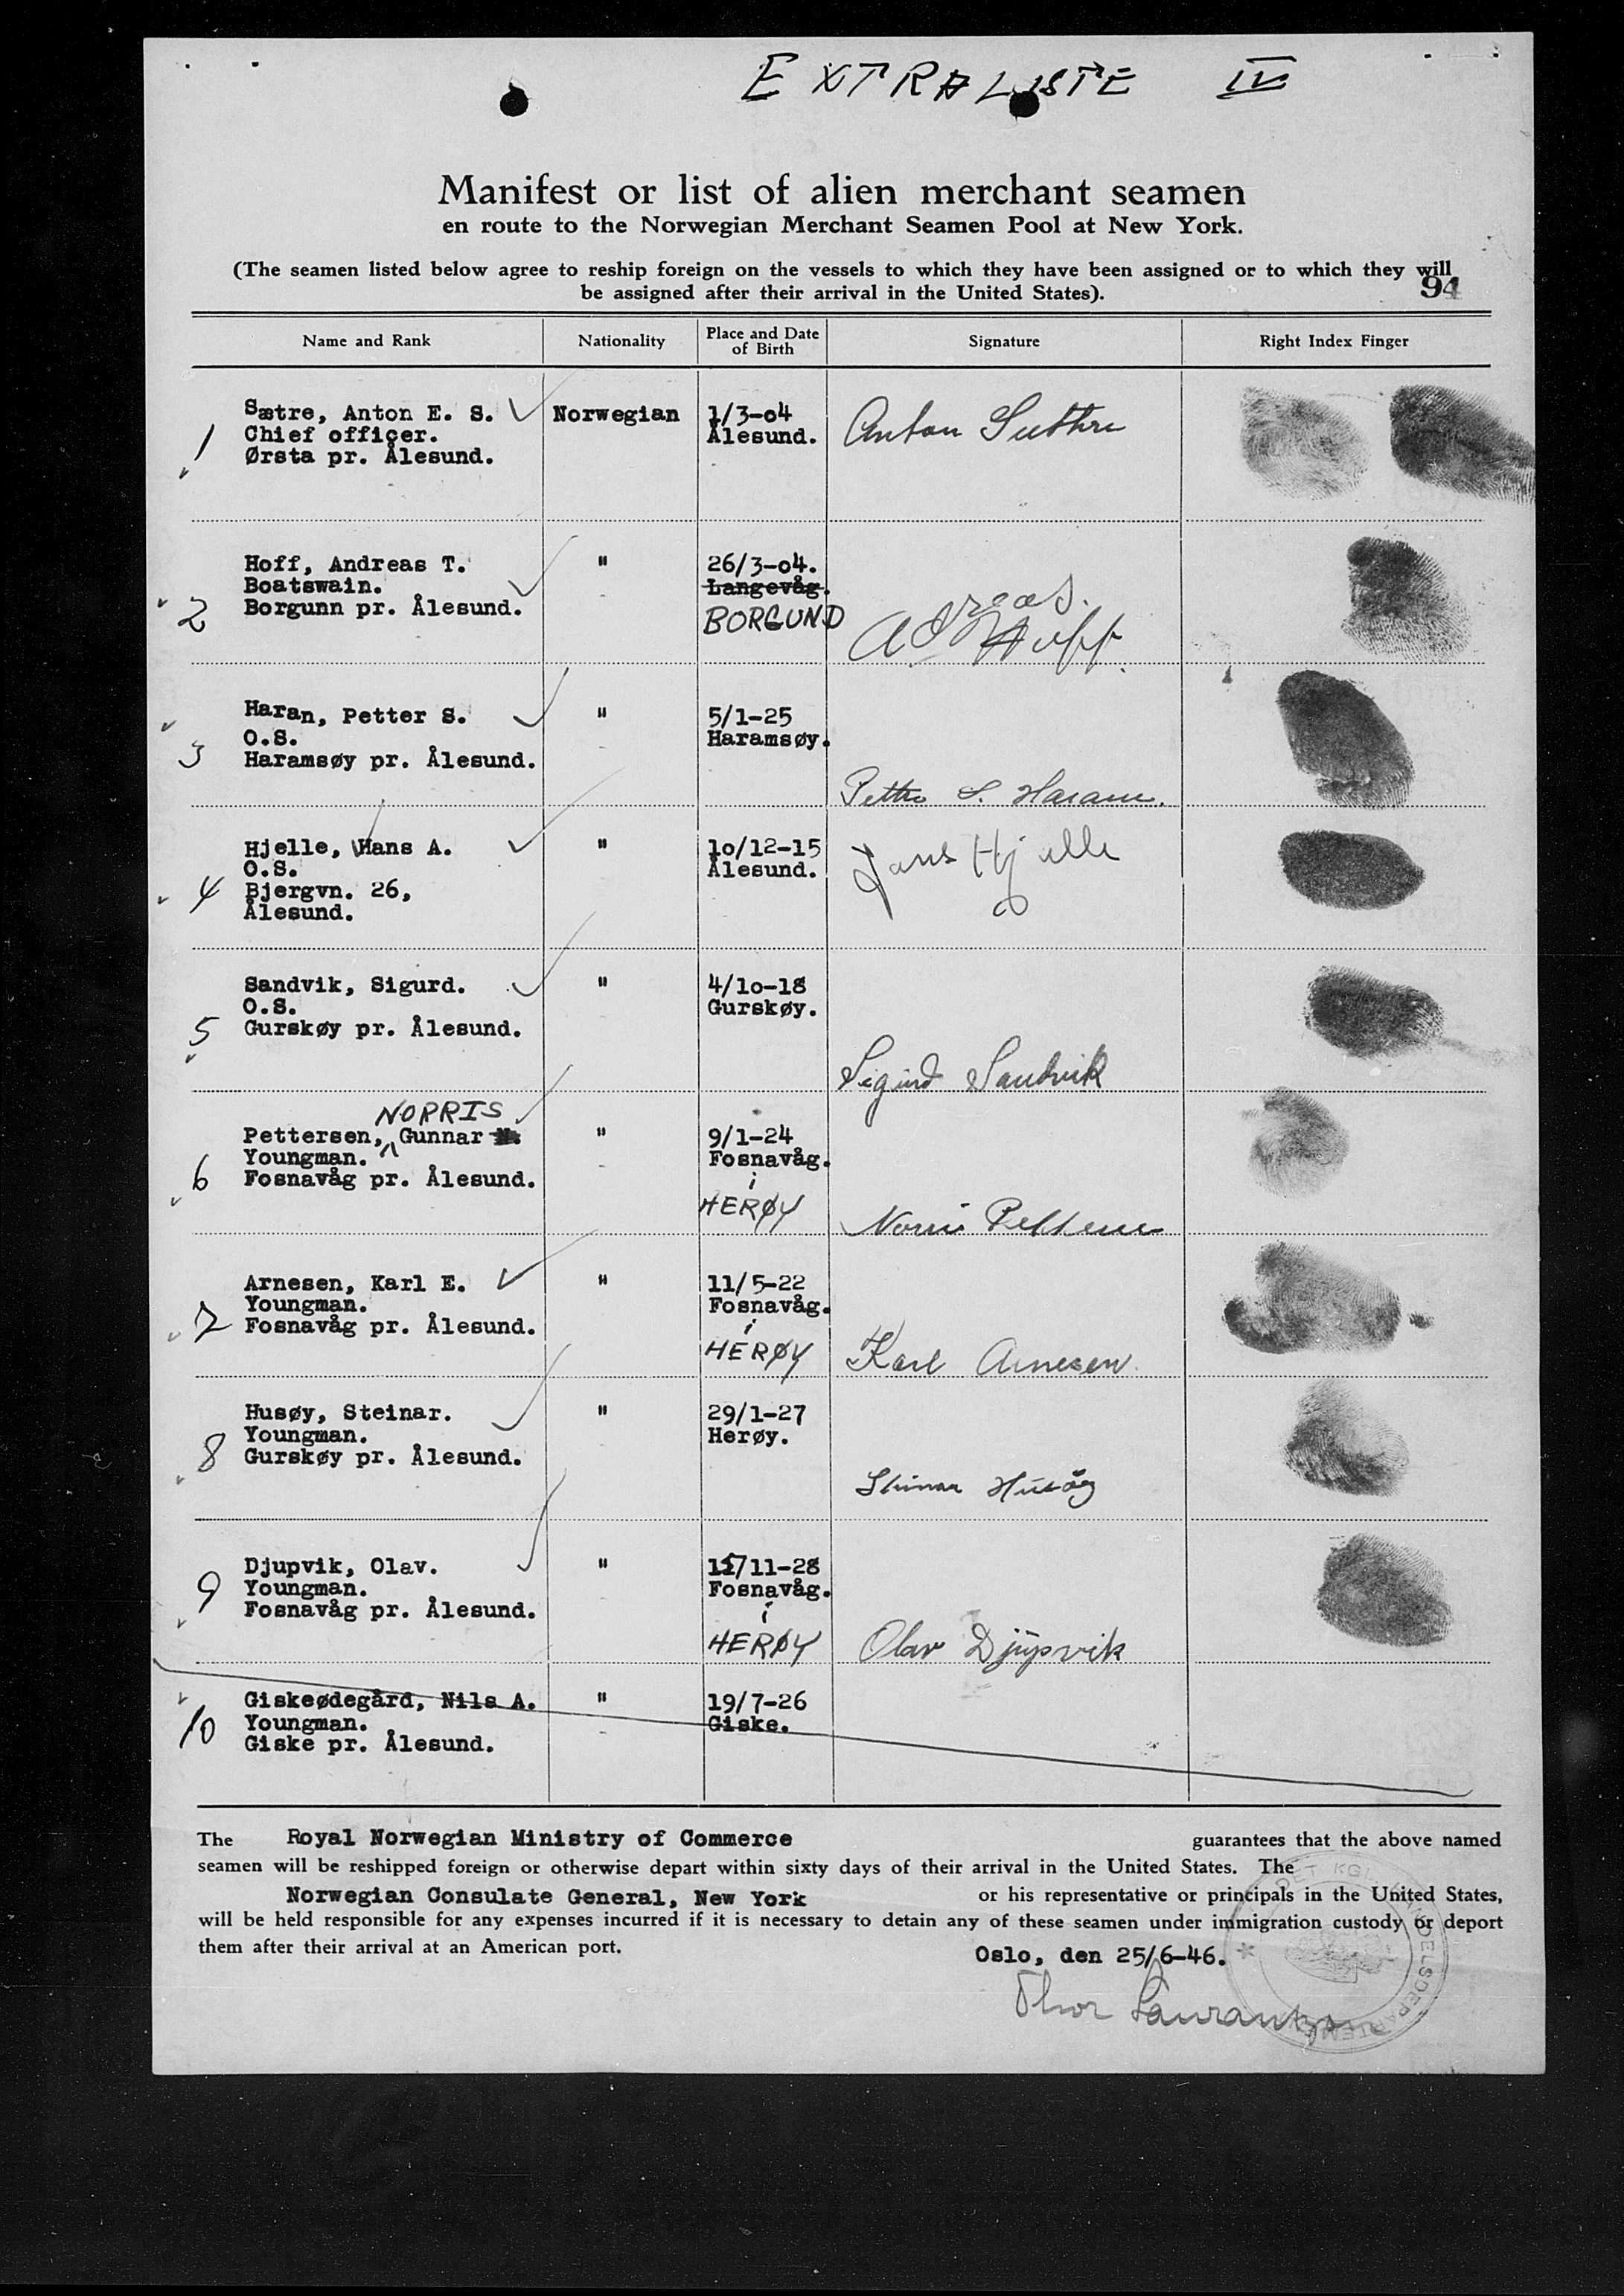 EXTRALISTE IV
Manifest or list of alien merchant seamen
en route to the Norwegian Merchant Seamen Pool at New York.
(The seamen listed below agree to reship foreign on the vessels to which they have been assigned or to which they will
be assigned after their arrival in the United States).
94
Name and Rank Nationality Place and Date of Birth Signature Right Index Finger
1 Sætre, Anton E. S. Norwegian 1/3-04
Chief officer. Ålesund. Anton
Ørsta pr. Ålesund.
2 Hoff, Andreas T. " 26/3-04.
Boatswain. Langevåg.
Borgunn pr. Ålesund. BORGUND
Hoff.
3 Haran, Petter S. " 5/1-25
O.S. Haramsøy.
Haramsøy pr. Ålesund.
Petter S. Haram.
4 Hjelle, Hans A. " 10/12-15
O.S. Ålesund. Hjelle
Bjergvn. 26,
Ålesund.
5 Sandvik, Sigurd. " 4/10-18
O.S. Gurskøy.
Gurskøy pr. Ålesund.
Sigurd Sandvik
NORRIS
6 Pettersen, Gunnar N. " 9/1-24
Youngman. Fosnavåg.
Fosnavåg pr. Ålesund. i
HERØY
Norris Pettersen
7 Arnesen, Karl E. " 11/5-22
Youngman. Fosnavåg.
Fosnavåg pr. Ålesund. i
HERØY Karl Arnesen
8 Husøy, Steinar. " 29/1-27
Youngman. Herøy.
Gurskøy pr. Ålesund.
Steinar Husøy
9 Djupvik, Olav. " 15/11-28
Youngman. Fosnavåg.
Fosnavåg pr. Ålesund. i
HERØY Olav Djupvik
10 Giskeødegård, Nils A. " 19/7-26
Youngman. Giske.
Giske pr. Ålesund.
The Royal Norwegian Ministry of Commerce guarantees that the above named
seamen will be reshipped foreign or otherwise depart within sixty days of their arrival in the United States. The
Norwegian Consulate General, New York or his representative or principals in the United States,
will be held responsible for any expenses incurred if it is necessary to detain any of these seamen under immigration custody or deport
them after their arrival at an American port.
Oslo, den 25/6-46.
Thor
DET KGL. HANDELSDEPARTEMENT